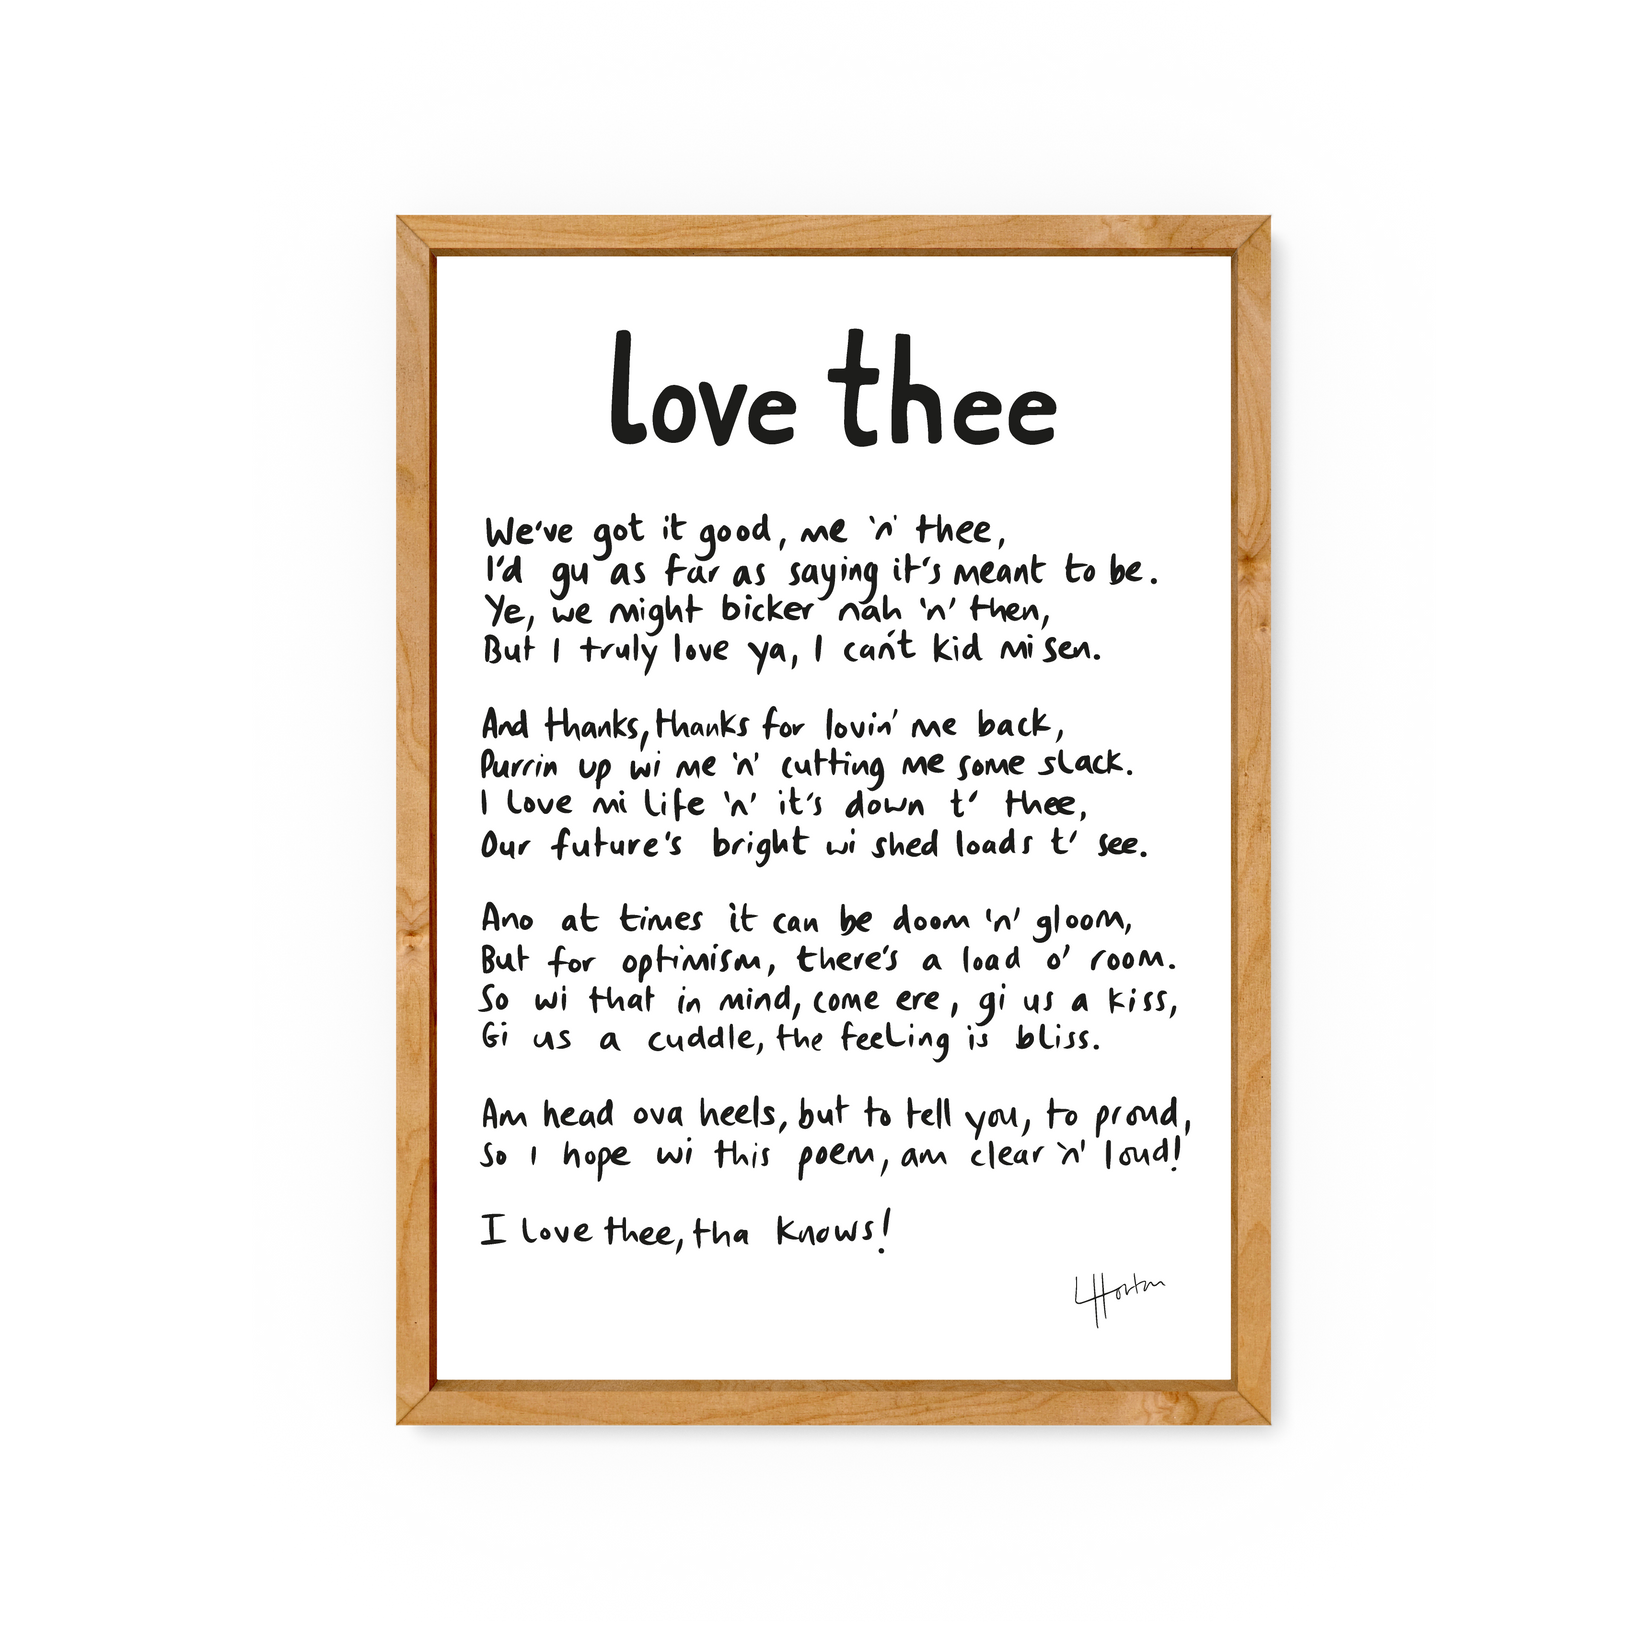 love thee
We've got it good, me 'n' thee,
I'd gu as far as saying it's meant to be.
Ye, we might bicker nah 'n' then,
But I truly love ya, I can't kid mi sen.
And thanks, thanks for lovin' me back,
Purrin up wi me 'n' cutting me some slack.
I love mi life 'n' it's down t' thee,
Our future's bright wi shed loads t' see.
Ano at times it can be doom 'n' gloom,
But for optimism, there's a load o' room.
So wi that in mind, come ere, gi us a kiss,
Gi us a cuddle, the feeling is bliss.
Am head ova heels, but to tell you, to proud,
So I hope wi this poem, am clear 'n' loud!
I love thee, tha knows!
LHorton